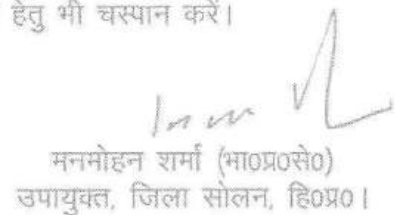 हेतु भी चस्पान करें।
मनमोहन शर्मा (भा०प्र०से०)
उपायुक्त, जिला सोलन, हि०प्र०।